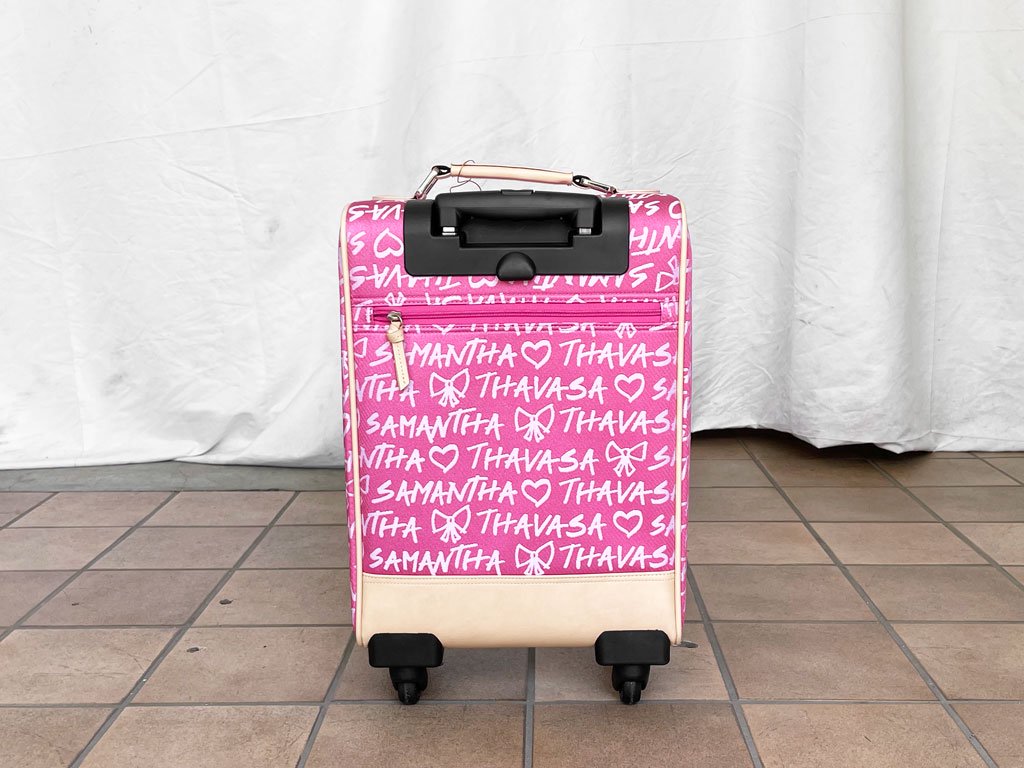 SAMANTHA THAVASA
NTHA THAVASA
SAMANTHA THAVAS
NTHA THAVASA S
SAMANTHA THAVAS
NTHA THAVASA SA
SAMANTHA THAVAS